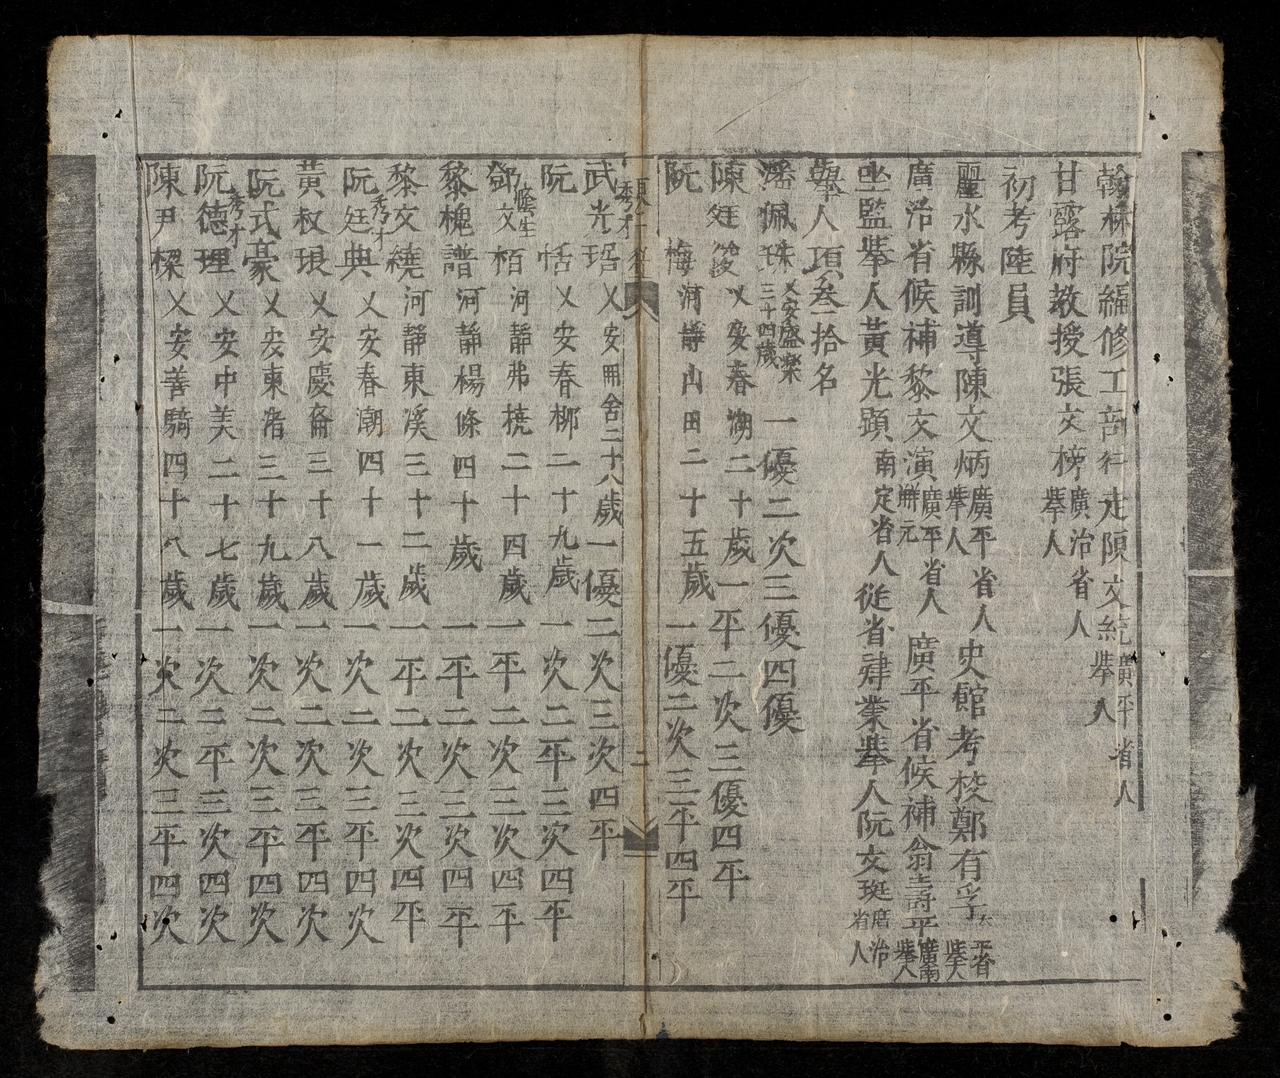 翰林院編修工部行走陳文統廣平省人舉人
甘露府教授張文榜廣治省人舉人
初考陸員
麗水縣訓導陳文炳廣平省人舉人 史館考校鄭有孚平省舉人
廣治省候補黎文演廣平省人解元 廣平省候補翁壽平廣南舉人
坐監舉人黃光顕南定省人 從省肄業舉人阮文珽廣治省人
舉人項叁拾名
潘佩珠乂安盛樂三十四歲 一優二次三優四優
陳廷 乂安春湖二十歲一平二次三優四平
阮梅河靜山田二十五歲一優二次三平四平
二
武光琩秀才乂安冊舍二十八歲一優二次三次四平
阮恬乂安春柳二十九歲一次二平三次四平
鄧文栢蔭生河靜弗橈二十四歲一平二次三次四平
黎槐譜河靜楊條四十歲一平二次三次四平
黎文繞河靜東溪三十二歲一平二次三次四平
阮廷典秀才乂安春潮四十一歲一次二次三平四次
黃权琅乂安慶裔三十八歲一次二次三平四次
阮式豪乂安東渚三十九歲一次二次三平四次
阮德理秀才乂安中美二十七歲一次二平三次四次
陳尹樑乂安善騎四十八歲一次二次三平四次